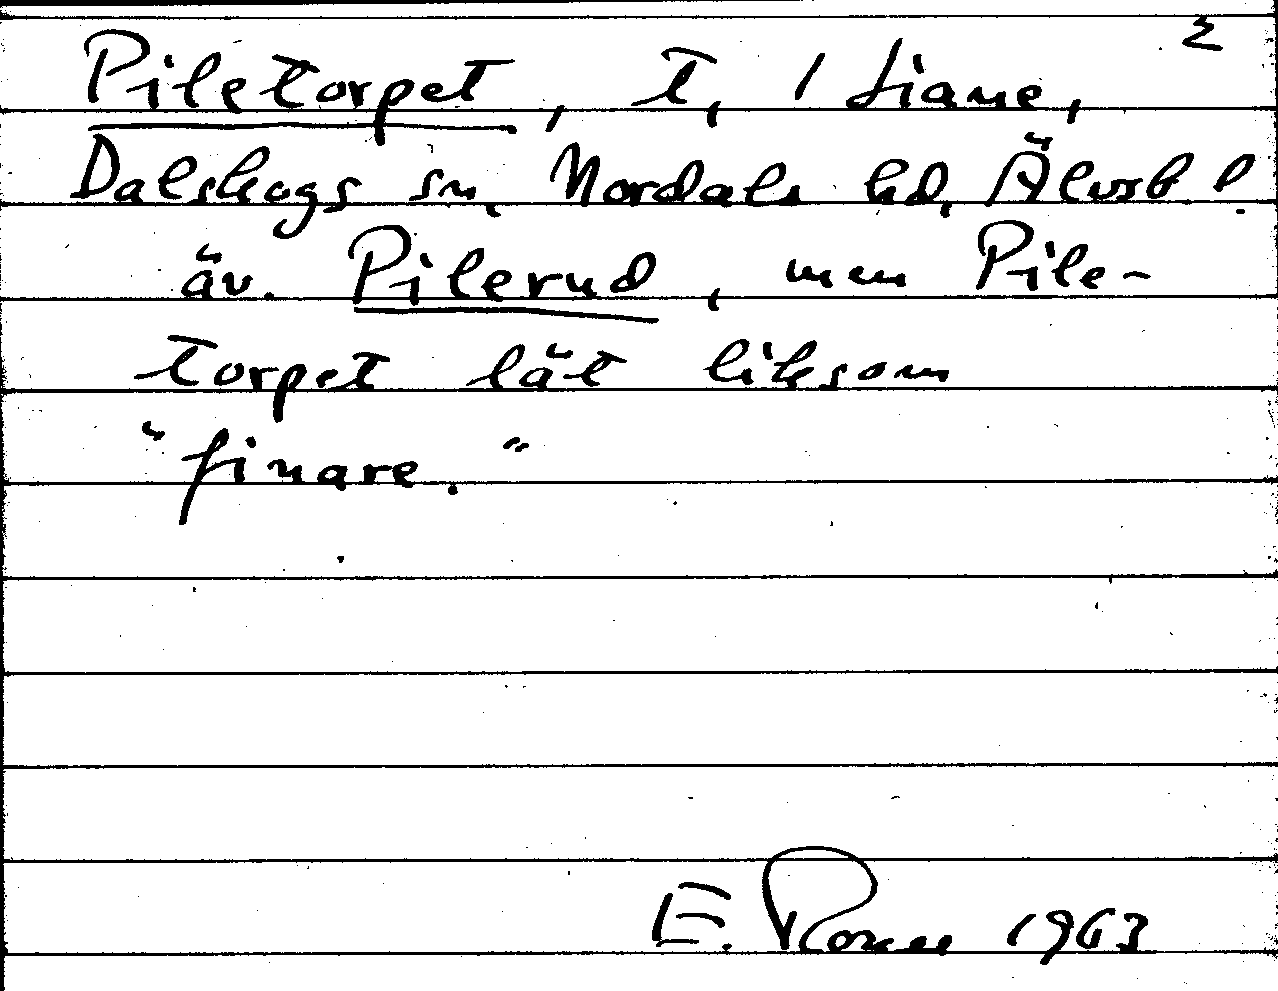 2
Piletorpet, T, 1 Liane,
Dalskogs sn, Nordals hd, Älvsb l.
äv. Pilerud, men Pile-
torpet lät liksom
"finare."
E. 1963